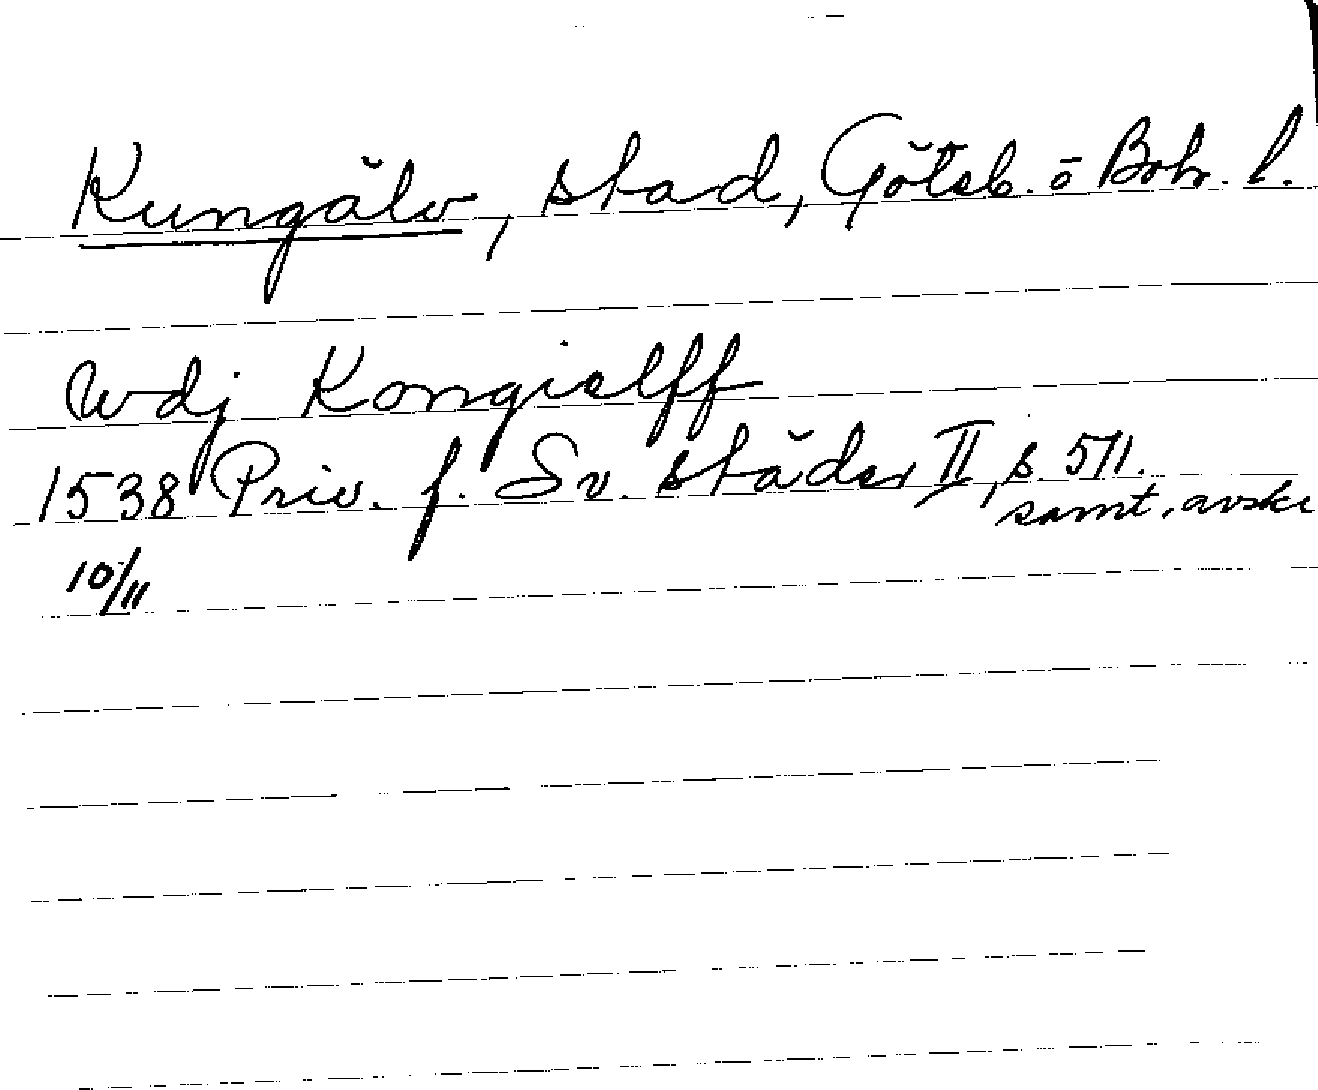 Kungälv, stad, Göteb. o Boh. l.
wdj Kongielff
1538 Priv. f. Sv. städer II, s. 511.
samt. avskr
10/11